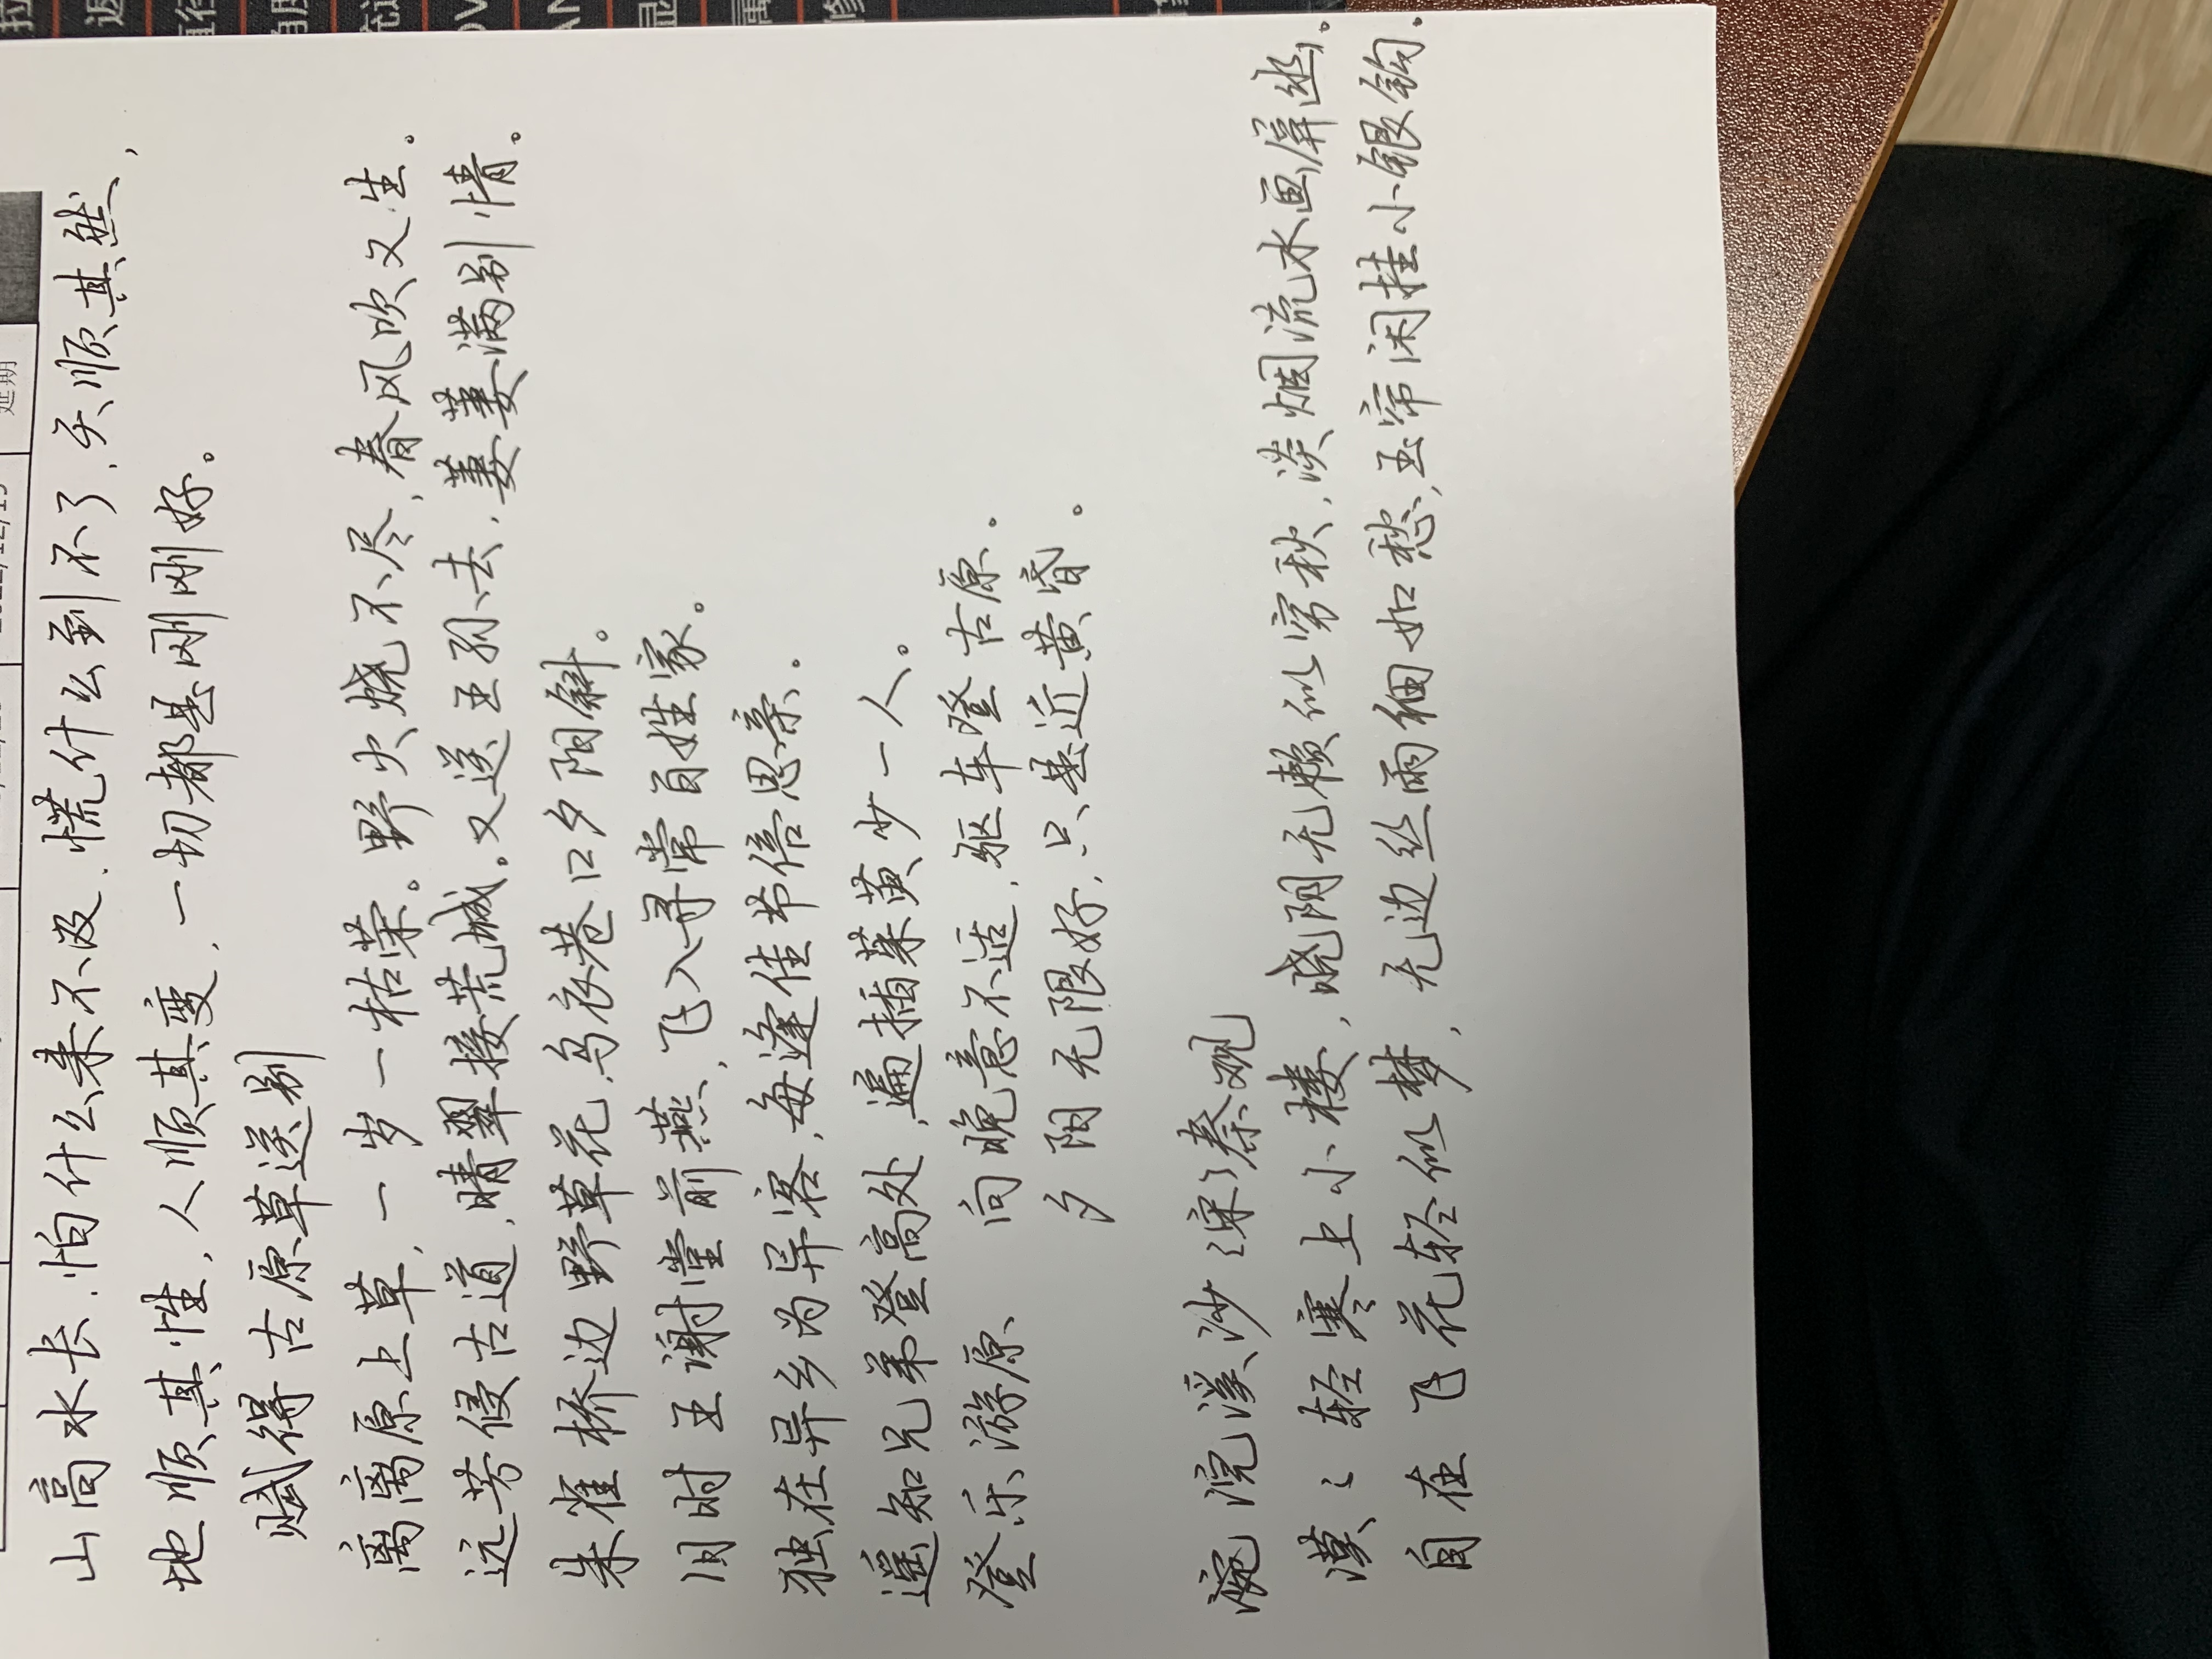 延期
山高水长,怕什么来不及,慌什么到不了,天顺其然,
地顺其性,人顺其变,一切都是刚刚好。
赋得古原草送别
离离原上草,一岁一枯荣。野火烧不尽,春风吹又生。
远芳侵古道,晴翠接荒城。又送王孙去,萋萋满别情。
朱雀桥边野草花,乌衣巷口夕阳斜。
旧时王谢堂前燕,飞入寻常百姓家。
独在异乡为异客,每逢佳节倍思亲。
遥知兄弟登高处,遍插茱萸少一人。
登乐游原 向晚意不适,驱车登古原。
夕阳无限好,只是近黄昏。
浣溪沙 宋 秦观
漠々轻寒上小楼,晓阴无赖似穷秋,淡烟流水画屏幽。
自在飞花轻似梦,无边丝雨细如愁,玉帘闲挂小银钩。